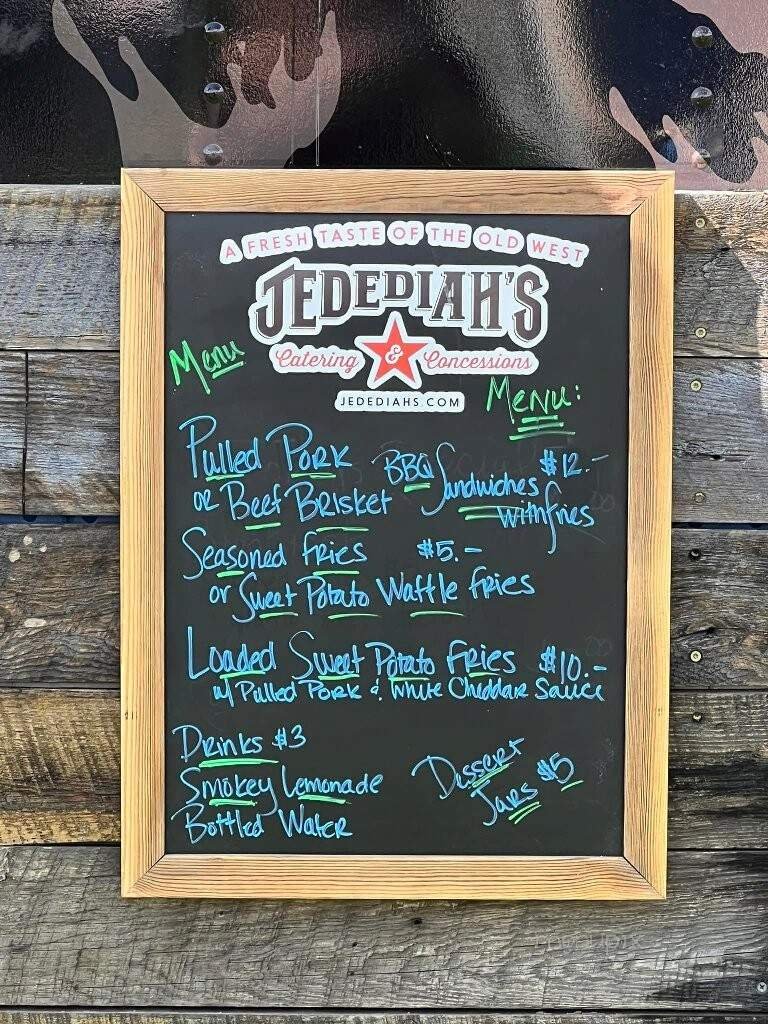 A FRESH TASTE OF THE OLD WEST
JEDEDIAH'S
Catering & Concessions
JEDEDIAHS.COM
Menu
Menu:
Pulled Pork
or Beef Brisket
BBQ Sandwiches
with fries
$12.-
Seasoned Fries $5.-
or Sweet Potato Waffle Fries
Loaded Sweet Potato Fries $10.-
w/ Pulled Pork & White Cheddar Sauce
Drinks $3
Smokey Lemonade
Bottled Water
Dessert
Jars $5